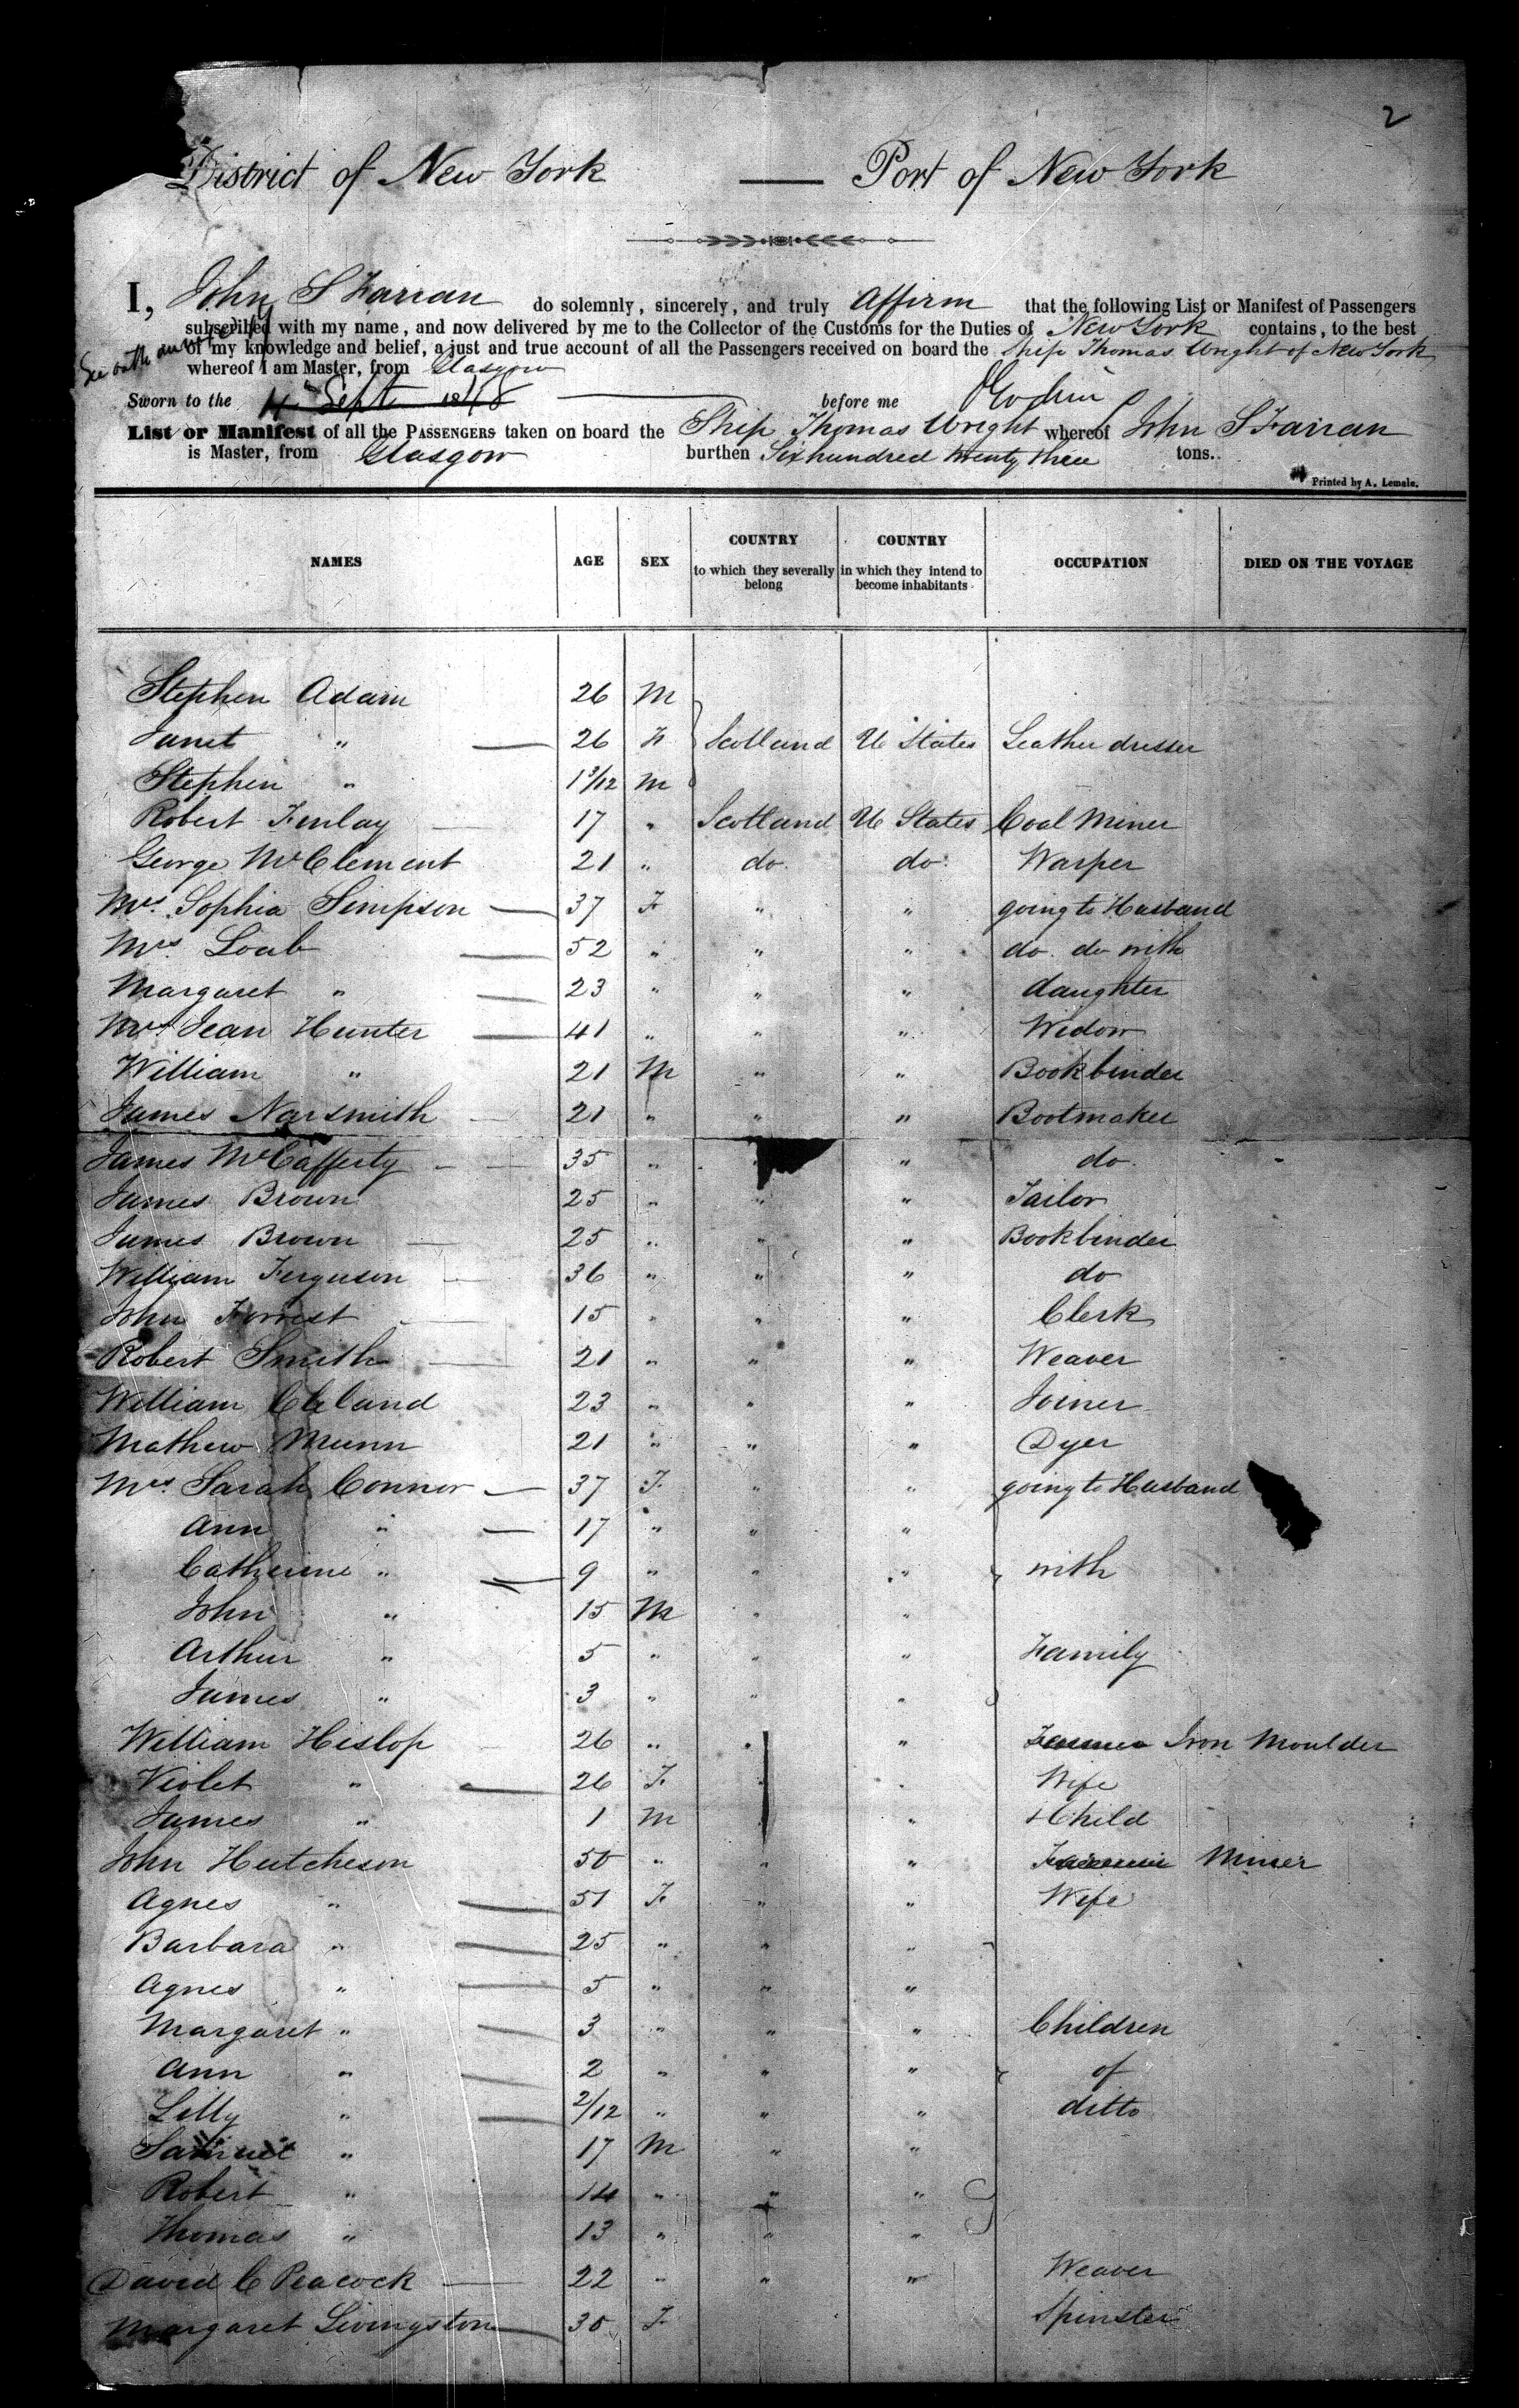 2
District of New York — Port of New York
I, John S Farran do solemnly, sincerely, and truly Affirm that the following List or Manifest of Passengers
subscribed with my name, and now delivered by me to the Collector of the Customs for the Duties of New York contains, to the best
of my knowledge and belief, a just and true account of all the Passengers received on board the Ship Thomas Wright of New York
whereof I am Master, from Glasgow
See oath
Sworn to the 4 Sept 1848 before me
List or Manifest of all the PASSENGERS taken on board the Ship Thomas Wright whereof John S Farran
is Master, from Glasgow burthen Six hundred twenty three tons.
Printed by A. Lemale.
NAMES AGE SEX COUNTRY to which they severally belong COUNTRY in which they intend to become inhabitants OCCUPATION DIED ON THE VOYAGE
Stephen Adam 26 M
Janet " 26 F Scotland U States Leather dresser
Stephen " 1 3/12 M
Robert Finlay 17 " Scotland U States Coal Miner
George McClement 21 " do do Warper
Mrs. Sophia Simpson 37 F " " going to Husband
Mrs. Loab 52 " " " do. do with
Margaret " 23 " " " daughter
Mrs Jean Hunter 41 " " " Widow
William " 21 M " " Bookbinder
James Narsmith 21 " " " Bootmaker
James McCafferty 35 " " " do
James Brown 25 " " " Tailor
James Brown 25 " " " Bookbinder
William Ferguson 36 " " " do
John Forrest 15 " " " Clerk
Robert Smith 21 " " " Weaver
William Cleland 23 " " " Joiner
Mathew Munn 21 " " " Dyer
Mrs. Sarah Connor 37 F " " going to Husband
Ann " 17 " " "
Catherine " 9 " " " with
John " 15 M " "
Arthur " 5 " " " Family
James " 3 " " "
William Hislop 26 " " " Iron Moulder
Violet " 26 F " " Wife
James " 1 M " Child
John Hutcheson 50 " " " Miner
Agnes " 51 F " " Wife
Barbara " 25 " " "
Agnes " 5 " " "
Margaret " 3 " " " Children
Ann " 2 " " " of
Lilly " 2/12 " " " ditto
Samuel " 17 M " "
Robert " 14 " " "
Thomas " 13 " " "
David C Peacock 22 " " " Weaver
Margaret Livingston 30 F Spinster